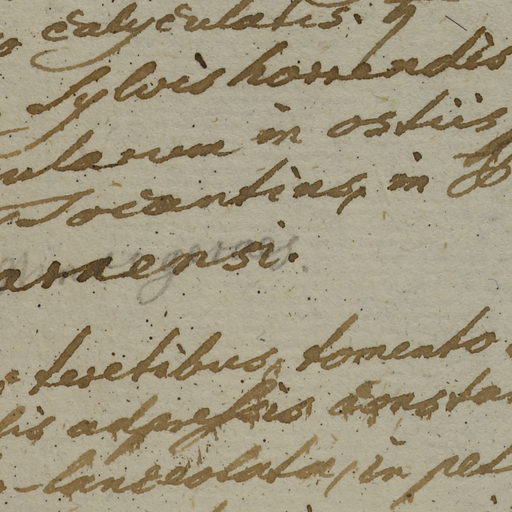 calyculatis.
Sylvis horrendis
ularum in ostiis
Tocantins, in
araensi.
teretibus, tomento
lis adpressis constan
-lanceolata, in pet